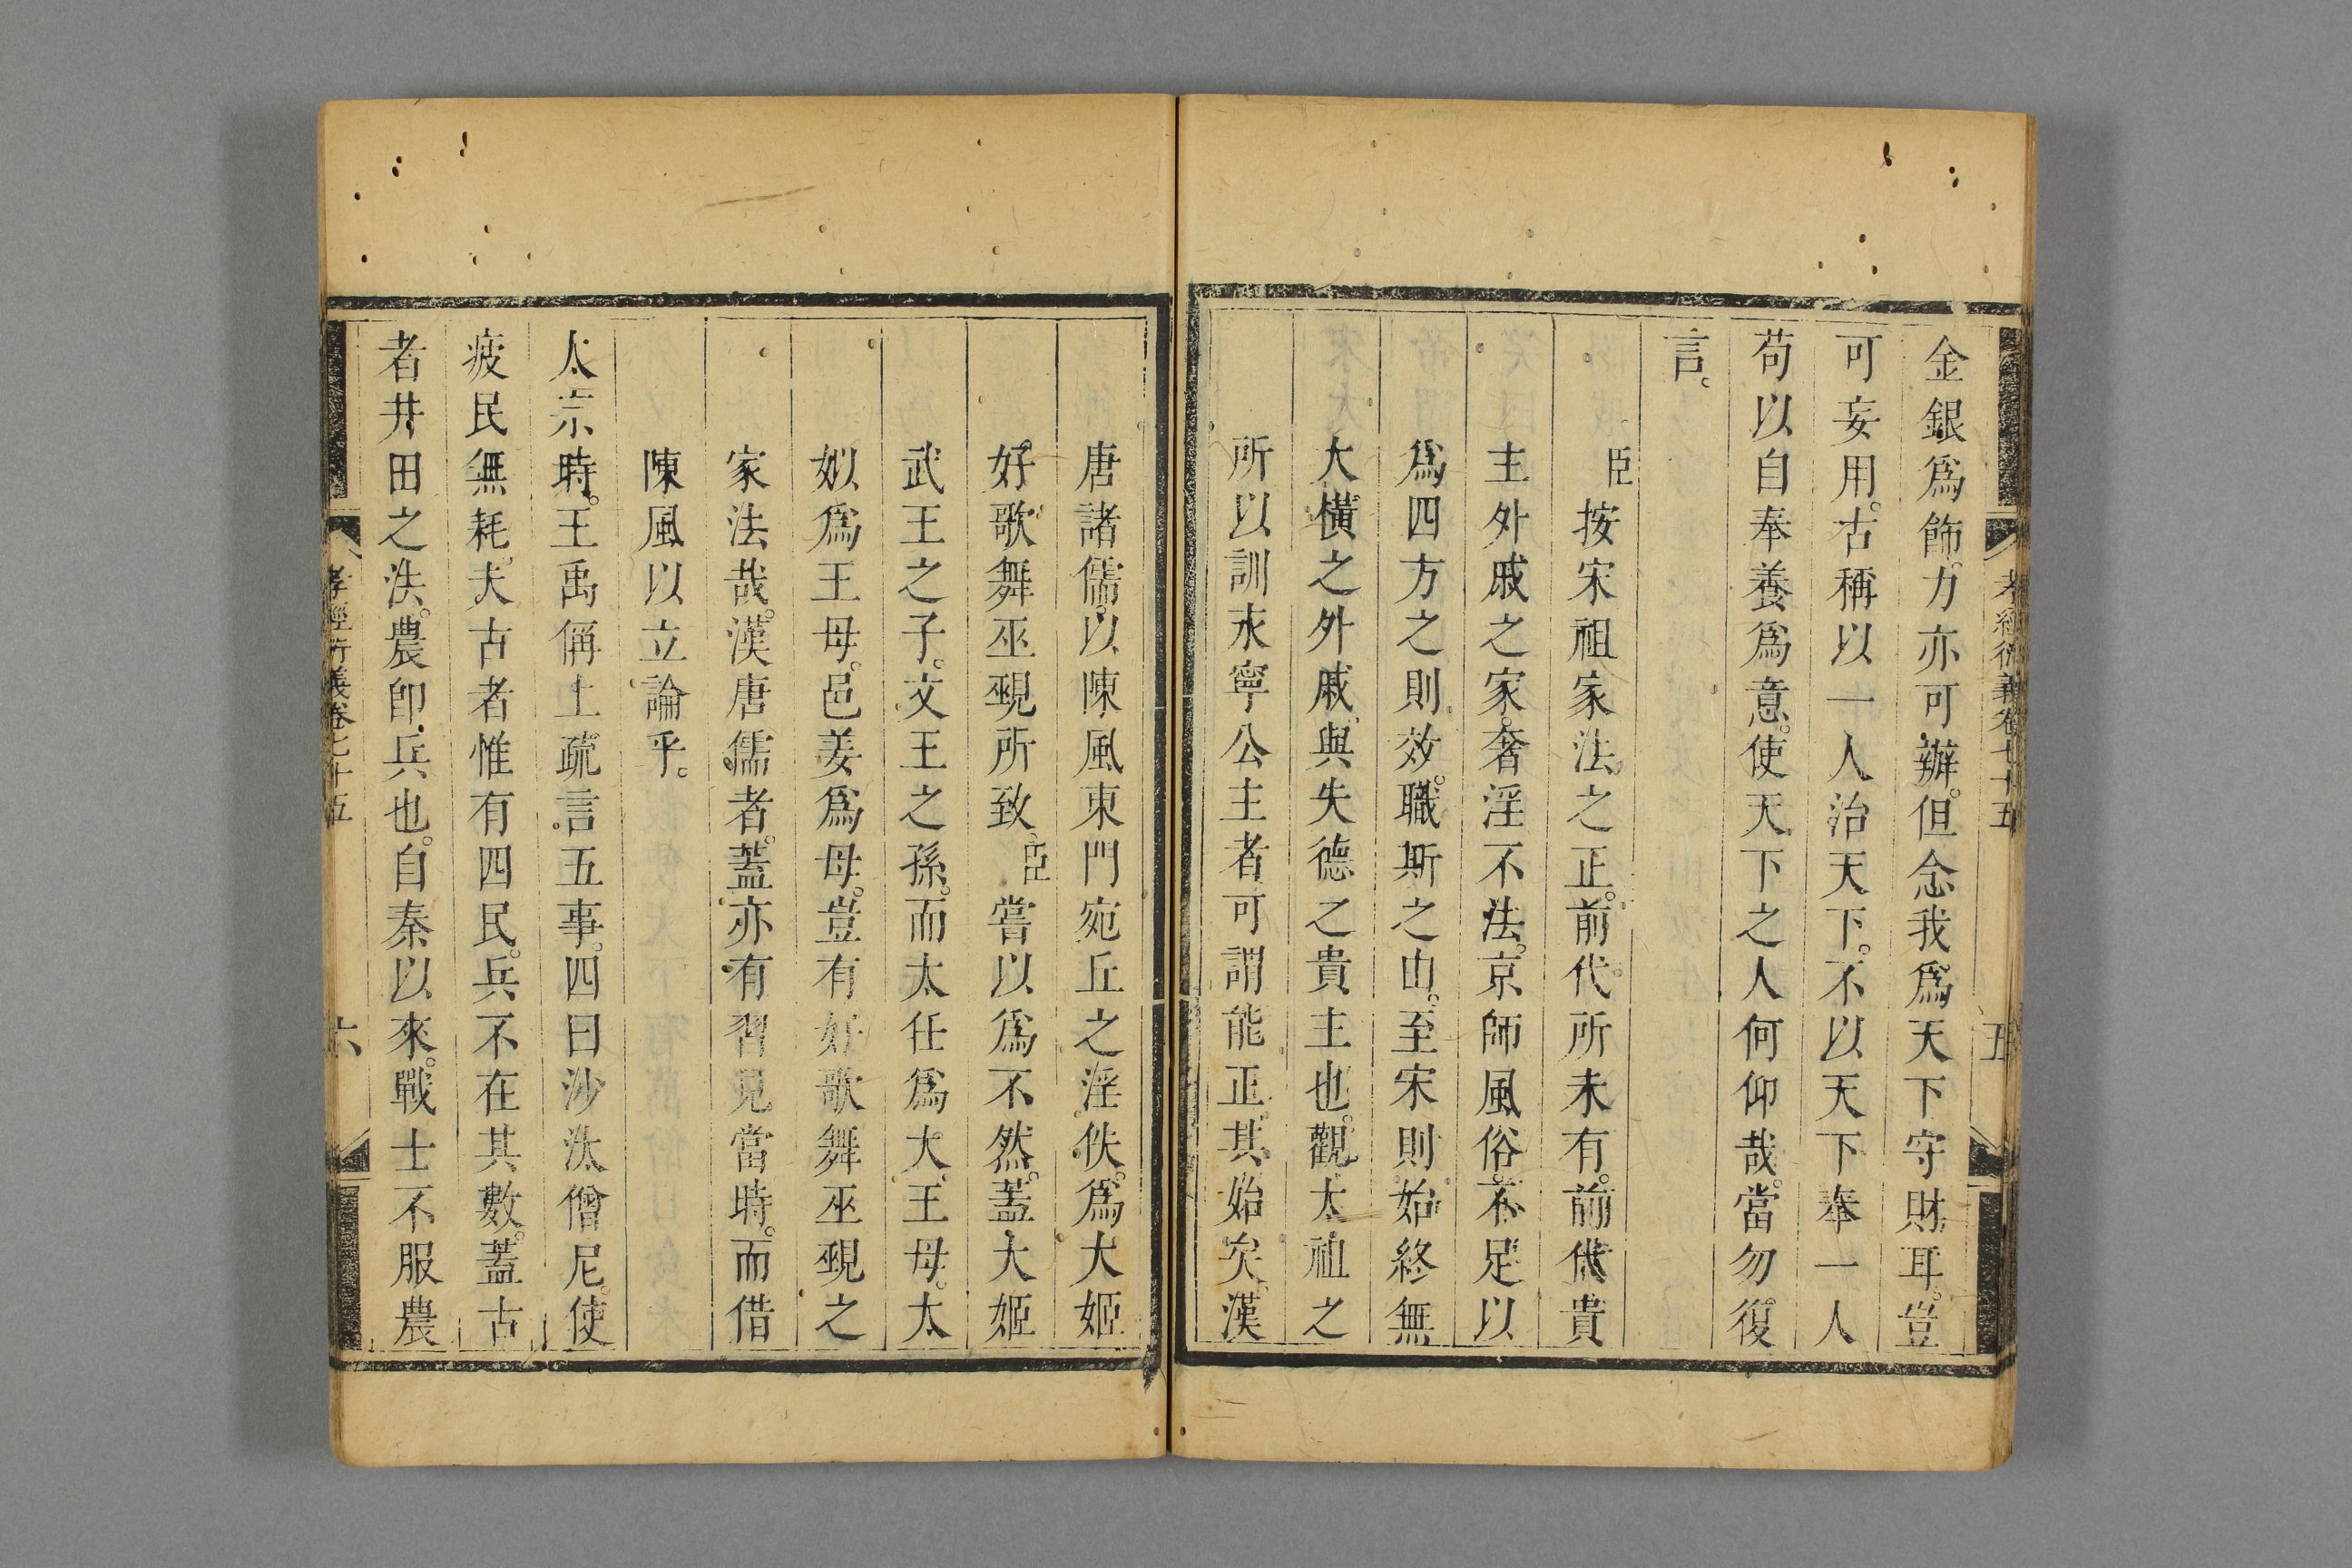 孝經衍義卷七十五
五
金銀爲飾。力亦可辦。但念我爲天下守財耳。豈
可妄用。古稱以一人治天下。不以天下奉一人
苟以自奉養爲意。使天下之人何仰哉。當勿復
言。
臣按宋祖家法之正。前代所未有。前代貴
主外戚之家。奢淫不法。京師風俗。不足以
爲四方之則效。職斯之由。至宋則始終無
大橫之外戚。與失德之貴主也。觀太祖之
所以訓永寧公主者。可謂能正其始矣。漢
唐諸儒。以陳風東門宛丘之淫佚。爲大姬
好歌舞巫覡所致。臣嘗以爲不然。蓋大姬
武王之子。文王之孫。而太任爲大王母。太
姒爲王母。邑姜爲母。豈有好歌舞巫覡之
家法哉。漢唐儒者。蓋亦有習見當時。而借
陳風以立論乎。
太宗時。王禹偁上疏言五事。四曰沙汰僧尼。使
疲民無耗。夫古者惟有四民。兵不在其數。蓋古
者井田之法。農卽兵也。自秦以來。戰士不服農
孝經衍義卷七十五
六